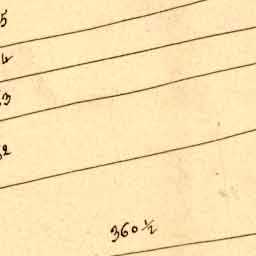 5
4
3
2
360 ½